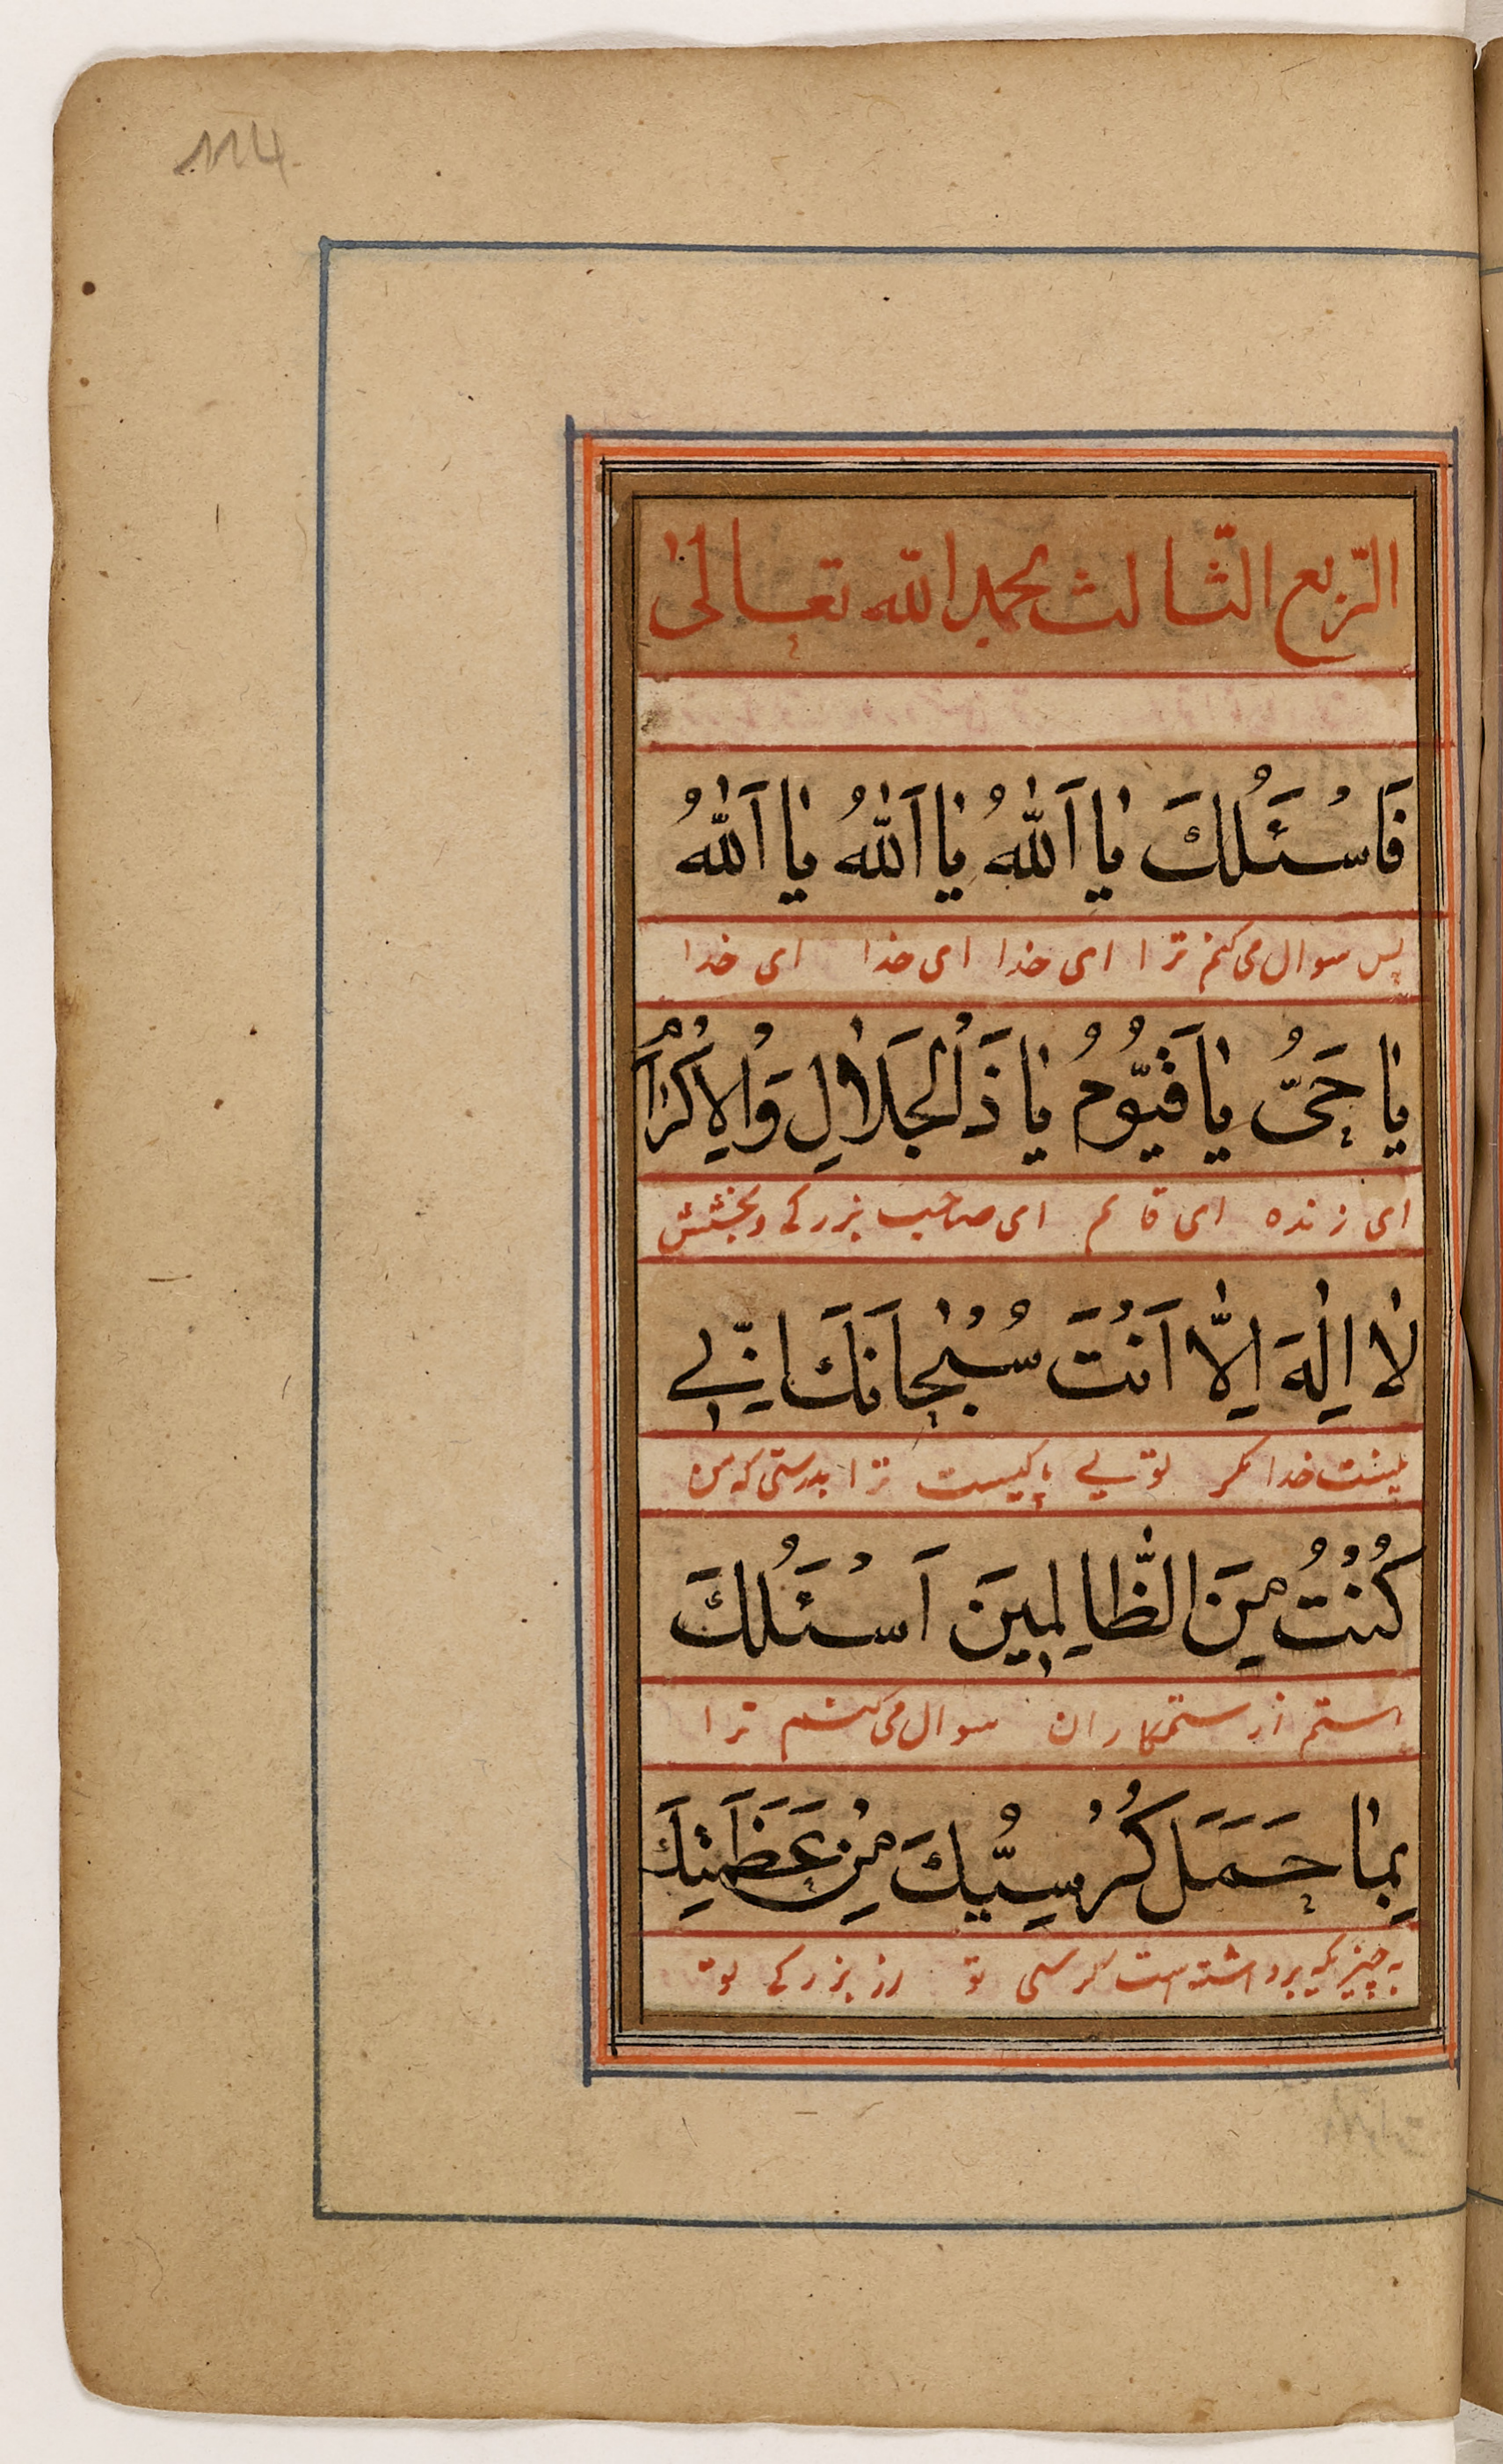 114
الرّبع الثّالث بحمد الله تعالىٰ
فَاسْئَلُكَ يٰا اَللّٰهُ يٰا اَللّٰهُ يٰا اَللّٰهُ
پس سوال می‌کنم ترا ای خدا ای خدا ای خدا
يٰا حَىُّ يٰا قَيُّوْمُ يٰا ذَالْجَلٰالِ وَالْاِكْرٰامْ
ای زنده ای قایم ای صاحب بزرکے و بخشش
لٰا اِلٰهَ اِلّٰا اَنْتَ سُبْحٰانَكَ اِنّٖے
نیست خدا مکر تویے پاکیست ترا بدرستی که من
كُنْتُ مِنَ الظّٰالِمٖينَ اَسْئَلُكَ
هستم از ستمکاران سوال می‌کنم ترا
بِمٰا حَمَلَ كُرْسِيُّكَ مِنْ عَظَمَتِكَ
به چیزیکه برداشته است کرسی تو از بزرکے تو